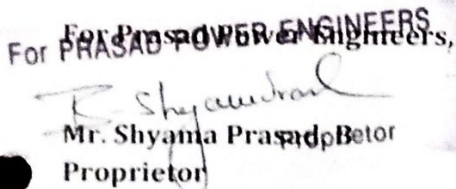 For Prasad Power Engineers,
For PRASAD POWER ENGINEERS
Mr. Shyama Prasad B
Proprietor
Proprietor